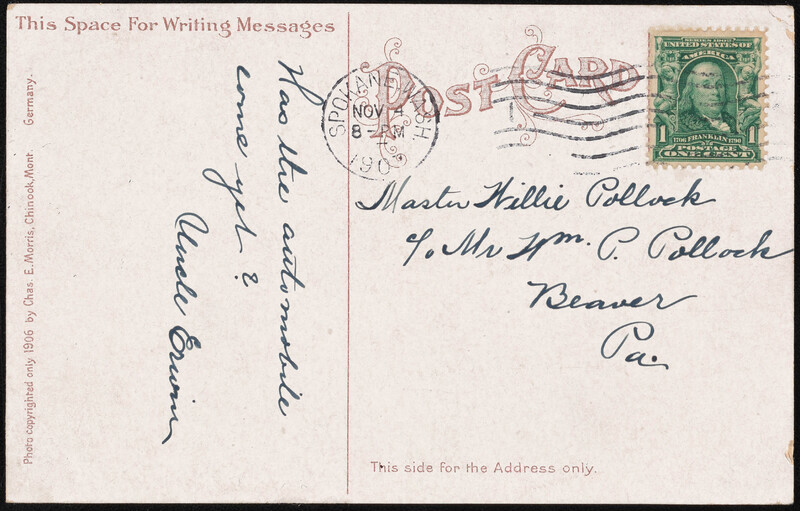 This Space For Writing Messages
Has the automobile
come yet?
Uncle Erwin
Photo copyrighted only 1906 by Chas. E. Morris, Chinook, Mont Germany.
POST CARD
SPOKANE, WASH
NOV 4
8-PM
SERIES 1902
UNITED STATES OF
AMERICA
1706 FRANKLIN 1790
1 POSTAGE 1
ONE CENT
Master Willie Pollock
c/o Mr Wm. P. Pollock
Beaver
Pa.
This side for the Address only.